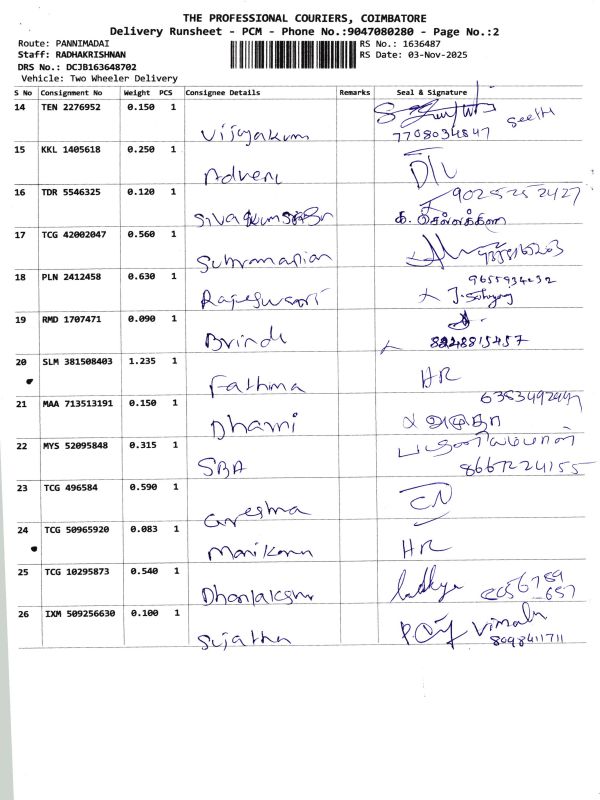 THE PROFESSIONAL COURIERS, COIMBATORE
Delivery Runsheet - PCM - Phone No.:9047080280 - Page No.:2
Route: PANNIMADAI
RS No.: 1636487
Staff: RADHAKRISHNAN
RS Date: 03-Nov-2025
DRS No.: DCJB163648702
Vehicle: Two Wheeler Delivery
S No Consignment No Weight PCS Consignee Details Remarks Seal & Signature
14 TEN 2276952 0.150 1
Vijayakum 7708034847
15 KKL 1405618 0.250 1
D/L
16 TDR 5546325 0.120 1
9025252427
17 TCG 42002047 0.560 1
Subramanian
18 PLN 2412458 0.630 1
Rajeswari
19 RMD 1707471 0.090 1
Brinde 8248815457
20 SLM 381508403 1.235 1
Fathima HR
21 MAA 713513191 0.150 1
Dharni அமுதா
22 MYS 52095848 0.315 1
SBA 8667224155
23 TCG 496584 0.590 1
Greshma
24 TCG 50965920 0.083 1
Manikann HR
25 TCG 10295873 0.540 1
26 IXM 509256630 0.100 1
Sujatha Vimala
8098411711